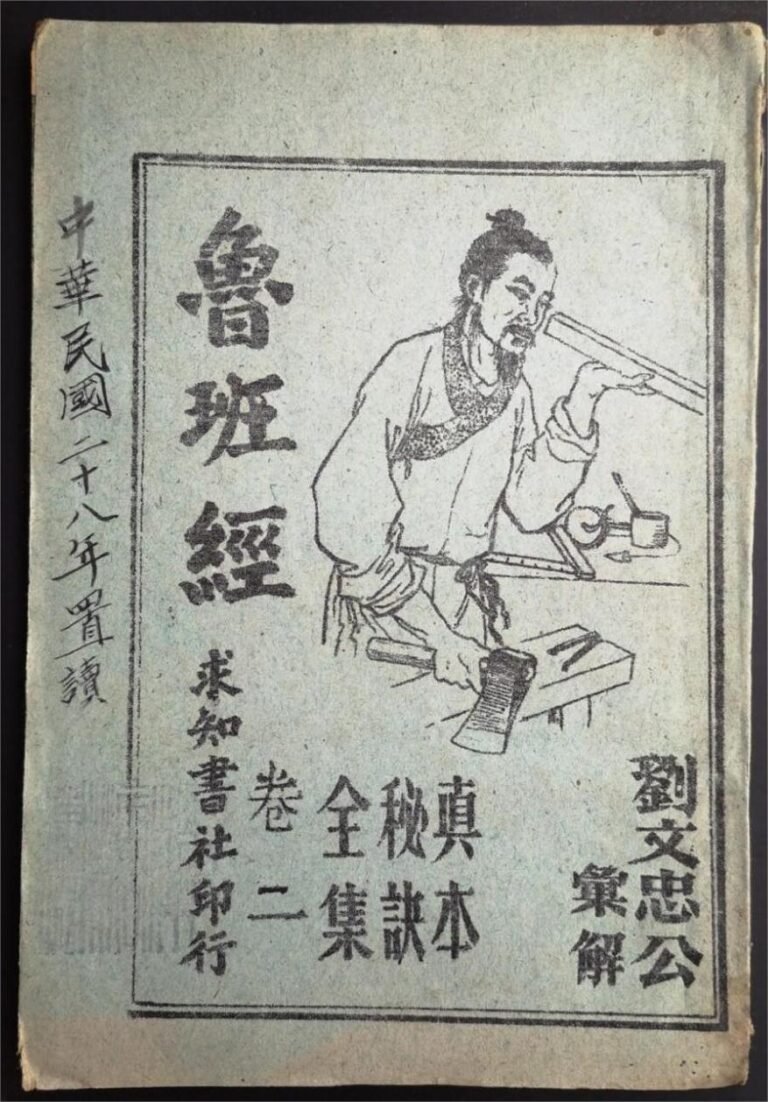 劉文忠公
彙解
真本
秘訣
全集
卷二
魯班經
求知書社印行
中華民國二十八年置讀